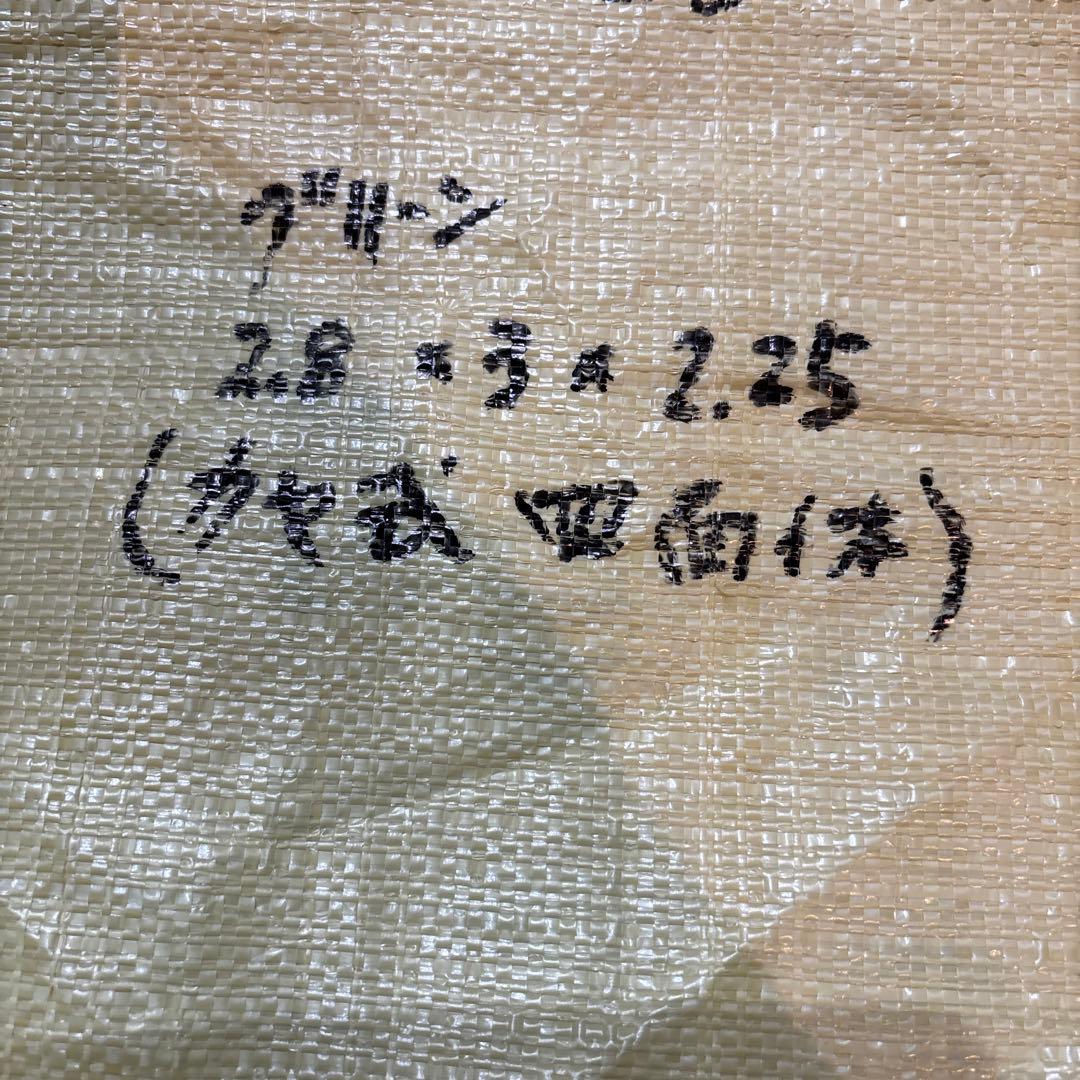 グリーン
2.8 × 3 × 2.25
(カヤ式 四面体)